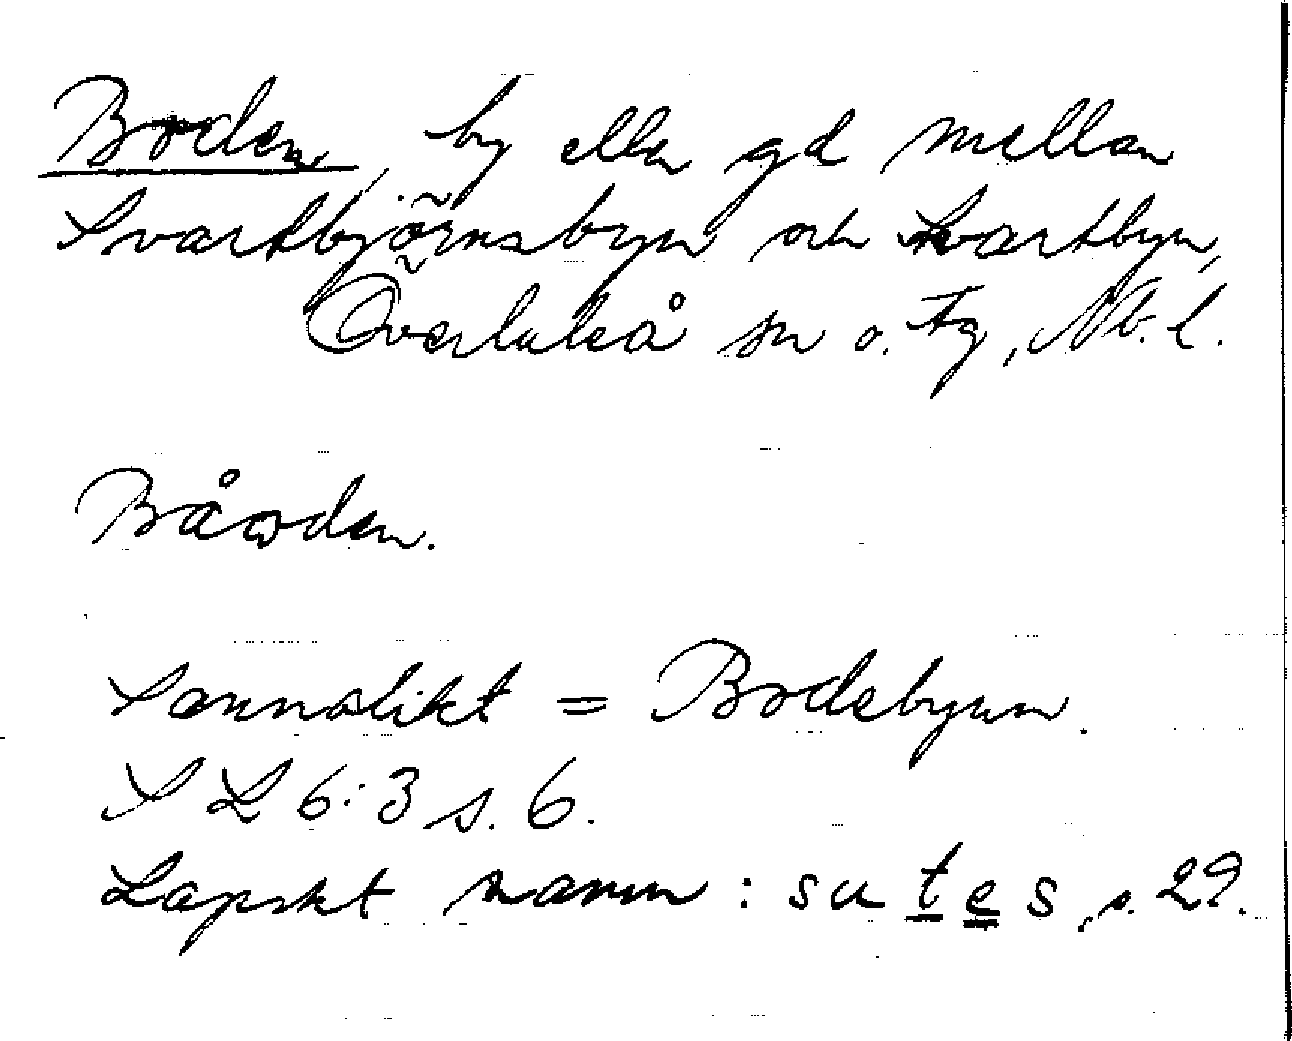 Boden, by eller gd mellan
Svartbjörnsbyn och Svartbyn,
Överluleå sn o. tg, Nb. l.
Båoden.
Sannolikt = Bodebyum.
SL 6:3 s. 6.
Lapskt namn: sutes, s. 29.